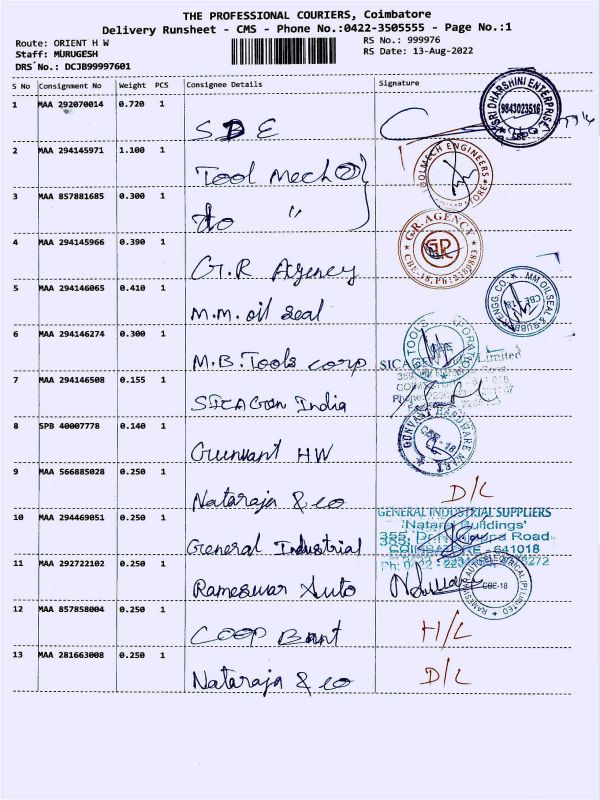 THE PROFESSIONAL COURIERS, Coimbatore
Delivery Runsheet - CMS - Phone No.:0422-3505555 - Page No.:1
Route: ORIENT H W RS No.: 999976
Staff: MURUGESH RS Date: 13-Aug-2022
DRS No.: DCJB99997601
S No Consignment No Weight PCS Consignee Details Signature
1 MAA 292070014 0.720 1 SDE
SRI DHARSHINI ENTERPRISE 9843023516 CBE
2 MAA 294145971 1.100 1 Tool Mech 2
TOOLMECH ENGINEERS COIMBATORE
3 MAA 857881685 0.300 1 do "
4 MAA 294145966 0.390 1 G.R Agency
G.R. AGENCY GR CBE-18
5 MAA 294146065 0.410 1 M.M. oil Seal
MM OILSEAL & RUBB ENGG. CO. CBE-18
6 MAA 294146274 0.300 1 M.B. Tools corp
7 MAA 294146508 0.155 1 SICAGon India
SICA Limited
8 SPB 40007778 0.140 1 Gunvant HW
GUNVANT HARDWARE MART CBE-18
9 MAA 566885028 0.250 1 Nataraja & co D/L
10 MAA 294469051 0.250 1 General Industrial
GENERAL INDUSTRIAL SUPPLIERS
'Nataraj Buildings'
Road
COIMBATORE - 641018
Ph: 0422
11 MAA 292722102 0.250 1 Rameswar Auto
RAMESWAR AUTO ELECTRICAL (P) LIMITED CBE-18
12 MAA 857858004 0.250 1 COOP Bant H/L
13 MAA 281663008 0.250 1 Nataraja & co D/L